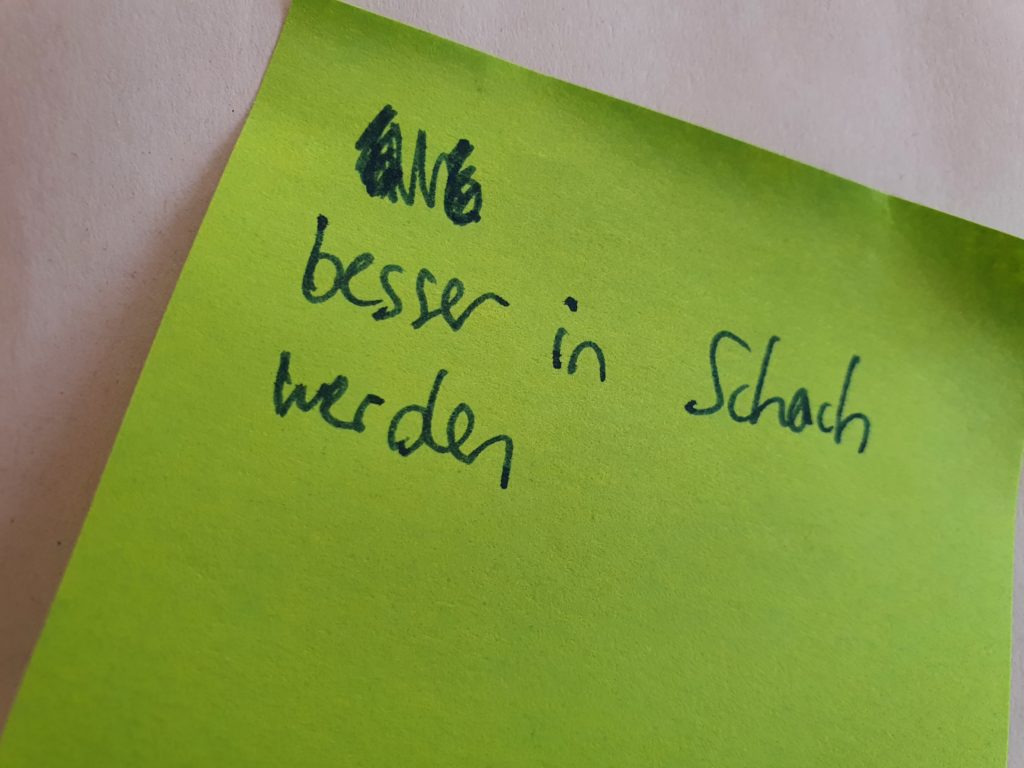 besser in Schach
werden